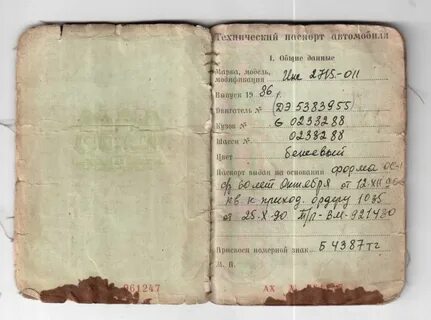 Технический паспорт автомобиля
1. Общие данные
Марка, модель,
модификация Иж 2715-011
Выпуск 1986 г.
Двигатель № (ДЭ 5383955)
Кузов № G 0238288
Шасси № 0238288
Цвет бежевый
Паспорт выдан на основании форма ОС-1
ф. 60 лет Октября от 12.XII 90
кв к приход. ордеру 1035
от 25.X-90 Т/п-ВМ-921430
Присвоен номерной знак Б 4387 тг
М. П.
061247
АХ